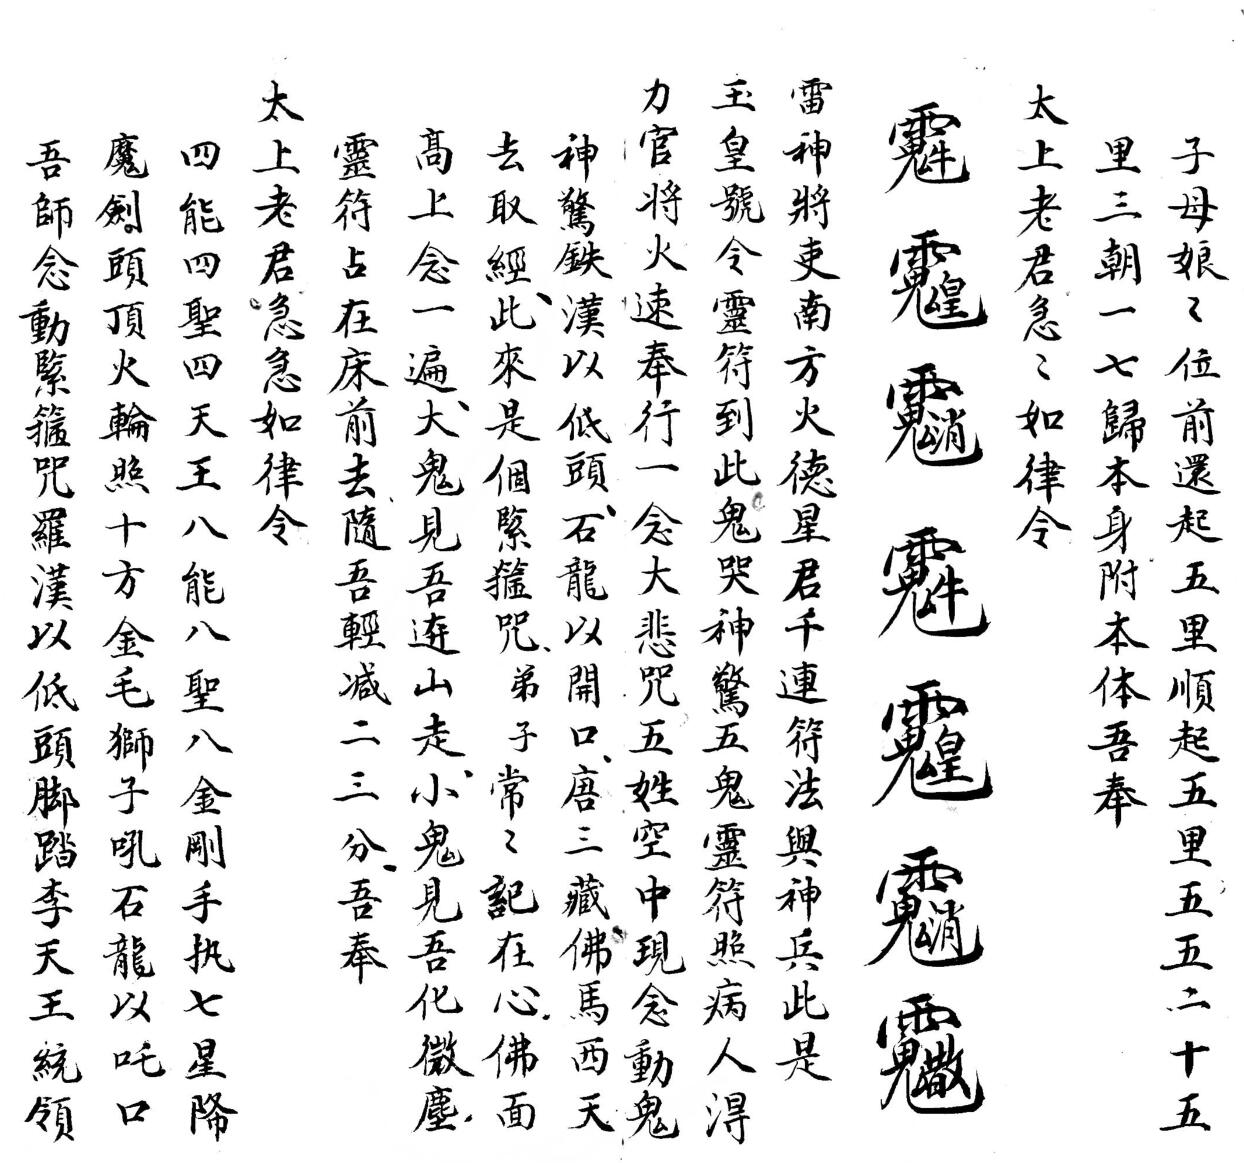 子母娘〻位前還起五里順起五里五五二十五
里三朝一七歸本身附本体吾奉
太上老君急〻如律令
雷神將吏南方火德星君千連符法與神兵此是
玉皇號令靈符到此鬼哭神驚五鬼靈符照病人淂
力官将火速奉行一念大悲咒五姓空中現念動鬼
神驚鉄漢以低頭、石龍以開口、唐三藏佛馬西天
去取經、此來是個緊箍咒、弟子常〻記在心、佛面
高上念一遍、大鬼見吾遊山走、小鬼見吾化微塵、
靈符占在床前去隨吾輕减二三分、吾奉
太上老君急急如律令
四能四聖四天王八能八聖八金剛手执七星降
魔劍頭頂火輪照十方金毛獅子吼石龍以吒口
吾師念動緊箍咒羅漢以低頭脚踏李天王統領